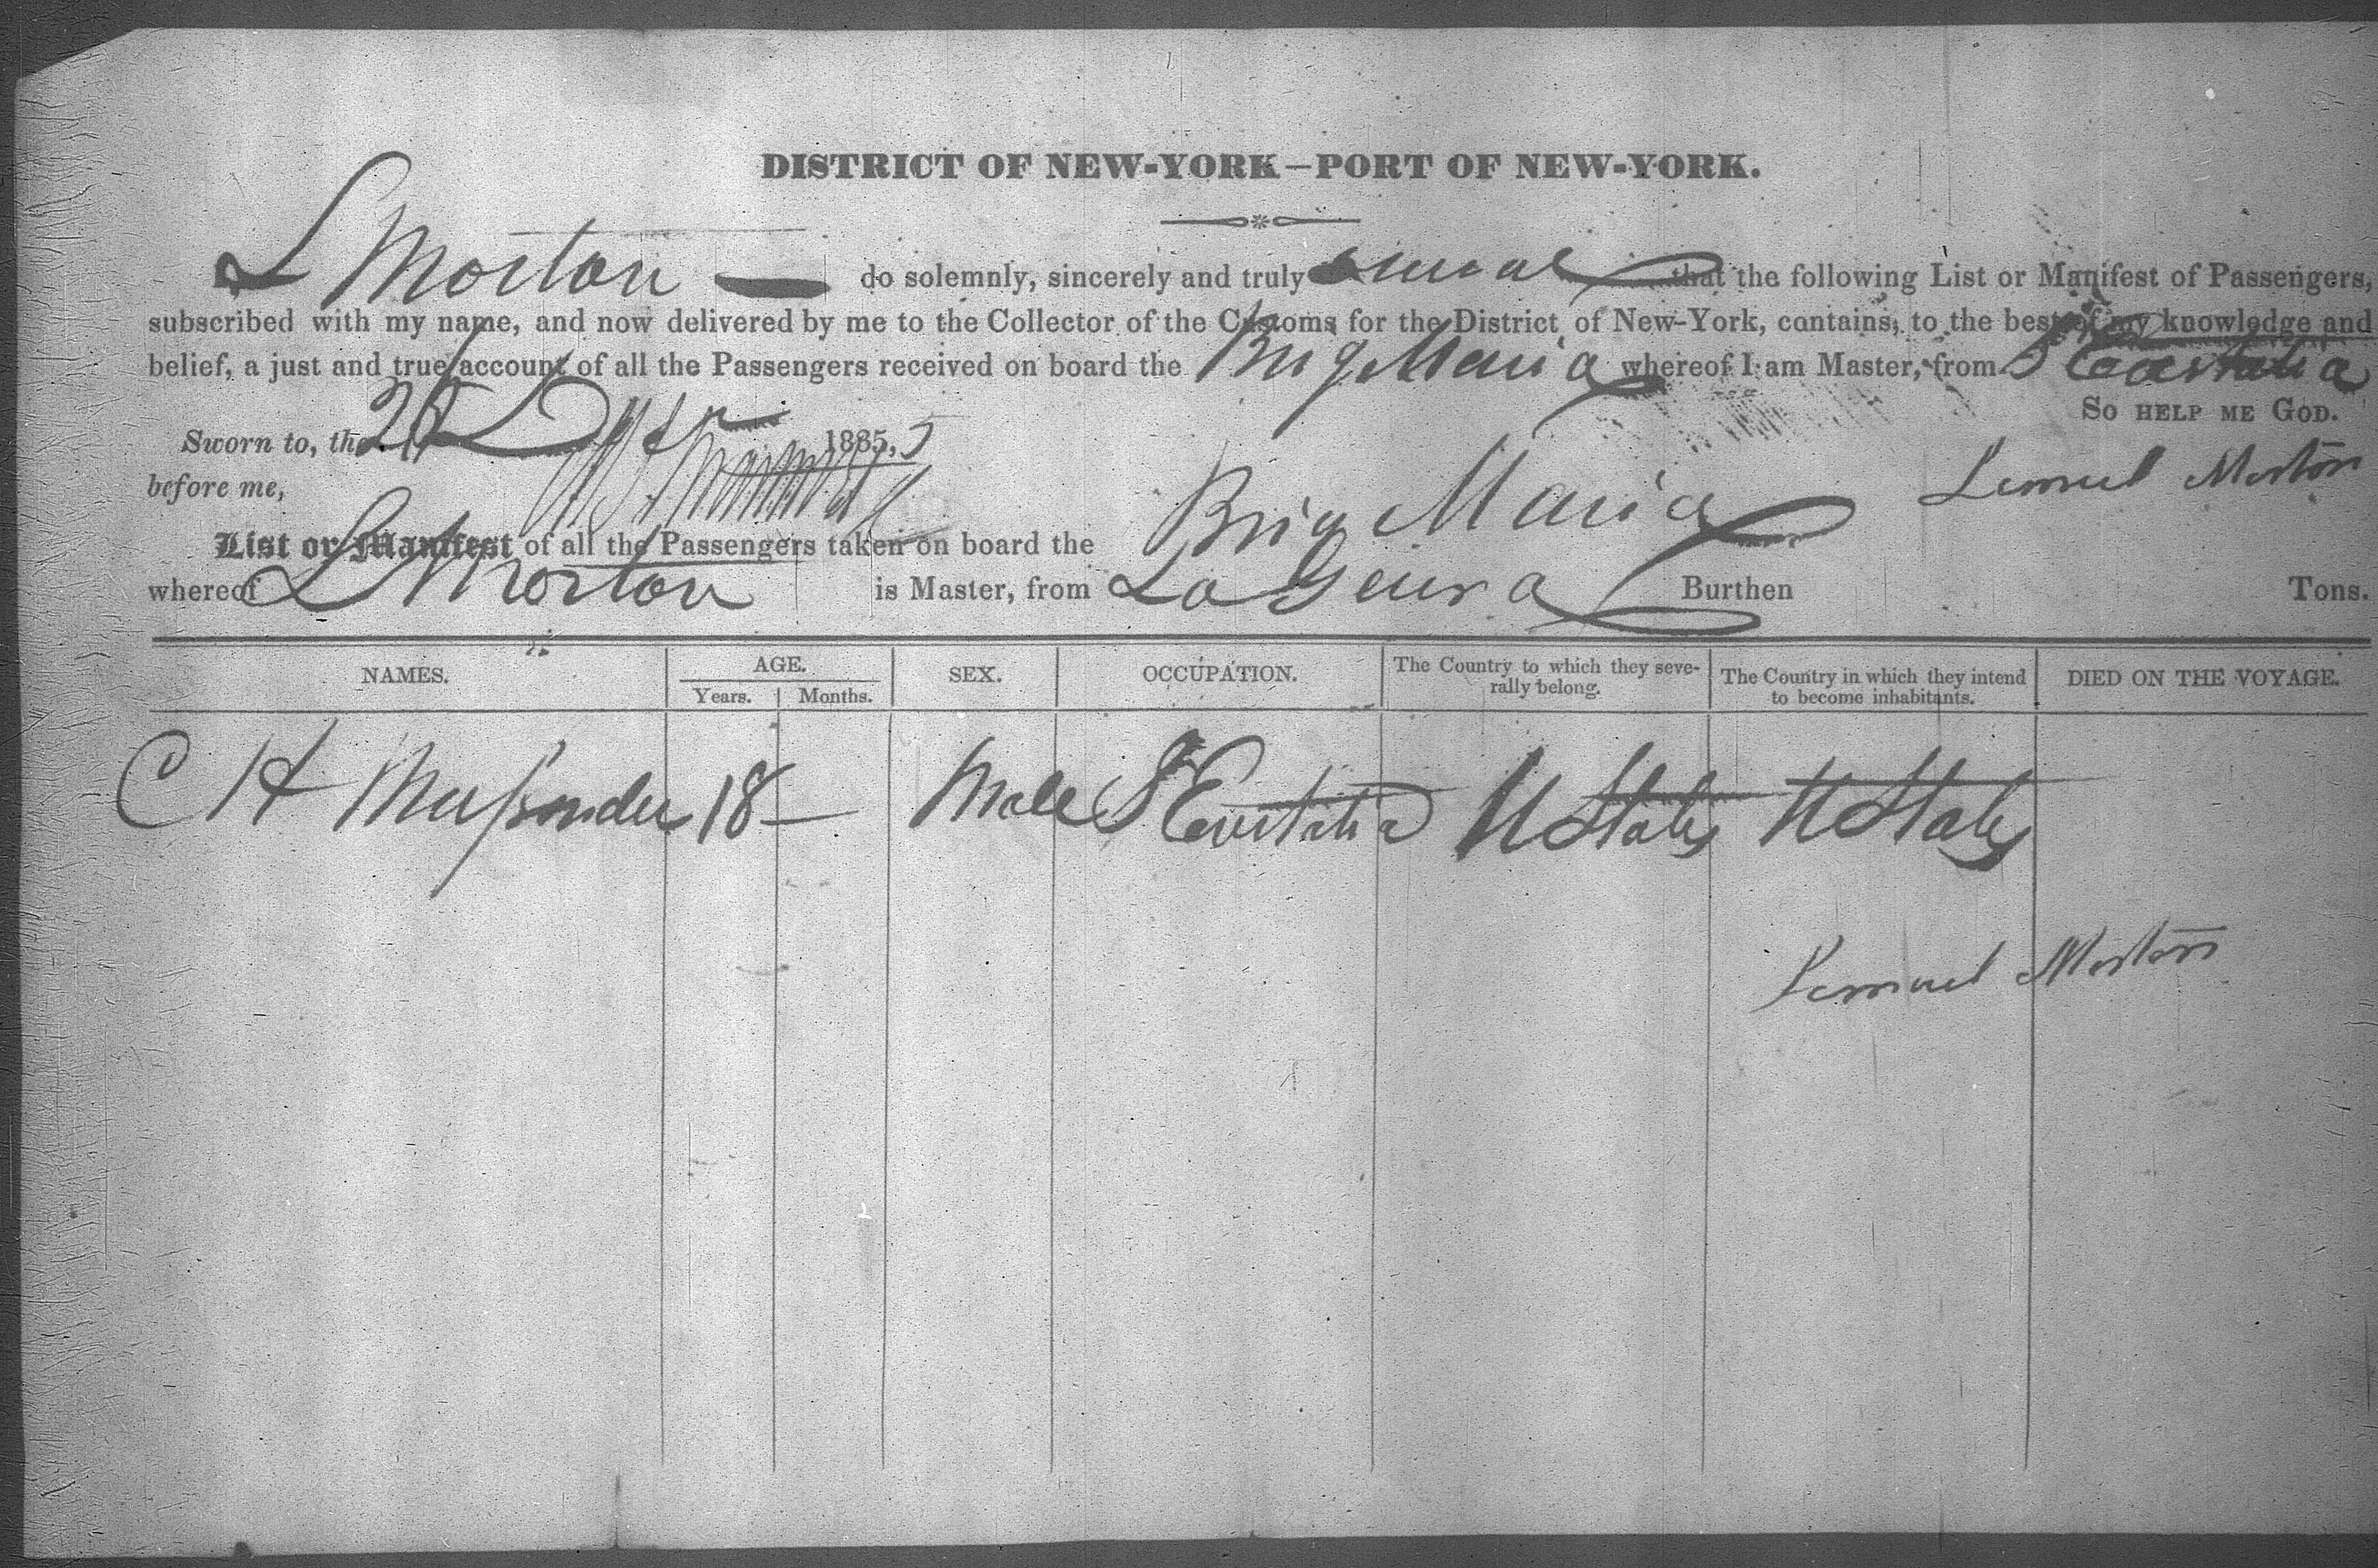 DISTRICT OF NEW-YORK—PORT OF NEW-YORK.
L Morton — do solemnly, sincerely and truly swear that the following List or Manifest of Passengers,
subscribed with my name, and now delivered by me to the Collector of the Customs for the District of New-York, contains, to the best of my knowledge and
belief, a just and true account of all the Passengers received on board the Brig Maria whereof I am Master, from St Eustatia
SO HELP ME GOD.
Sworn to, the 28 1835, 5
before me,
Lemuel Morton
List or Manifest of all the Passengers taken on board the Brig Maria
whereof L Morton is Master, from La Geura Burthen Tons.
NAMES. AGE. Years. Months. SEX. OCCUPATION. The Country to which they severally belong. The Country in which they intend to become inhabitants. DIED ON THE VOYAGE.
C H 18 — Male St Eustatia U States U States
Lemuel Morton